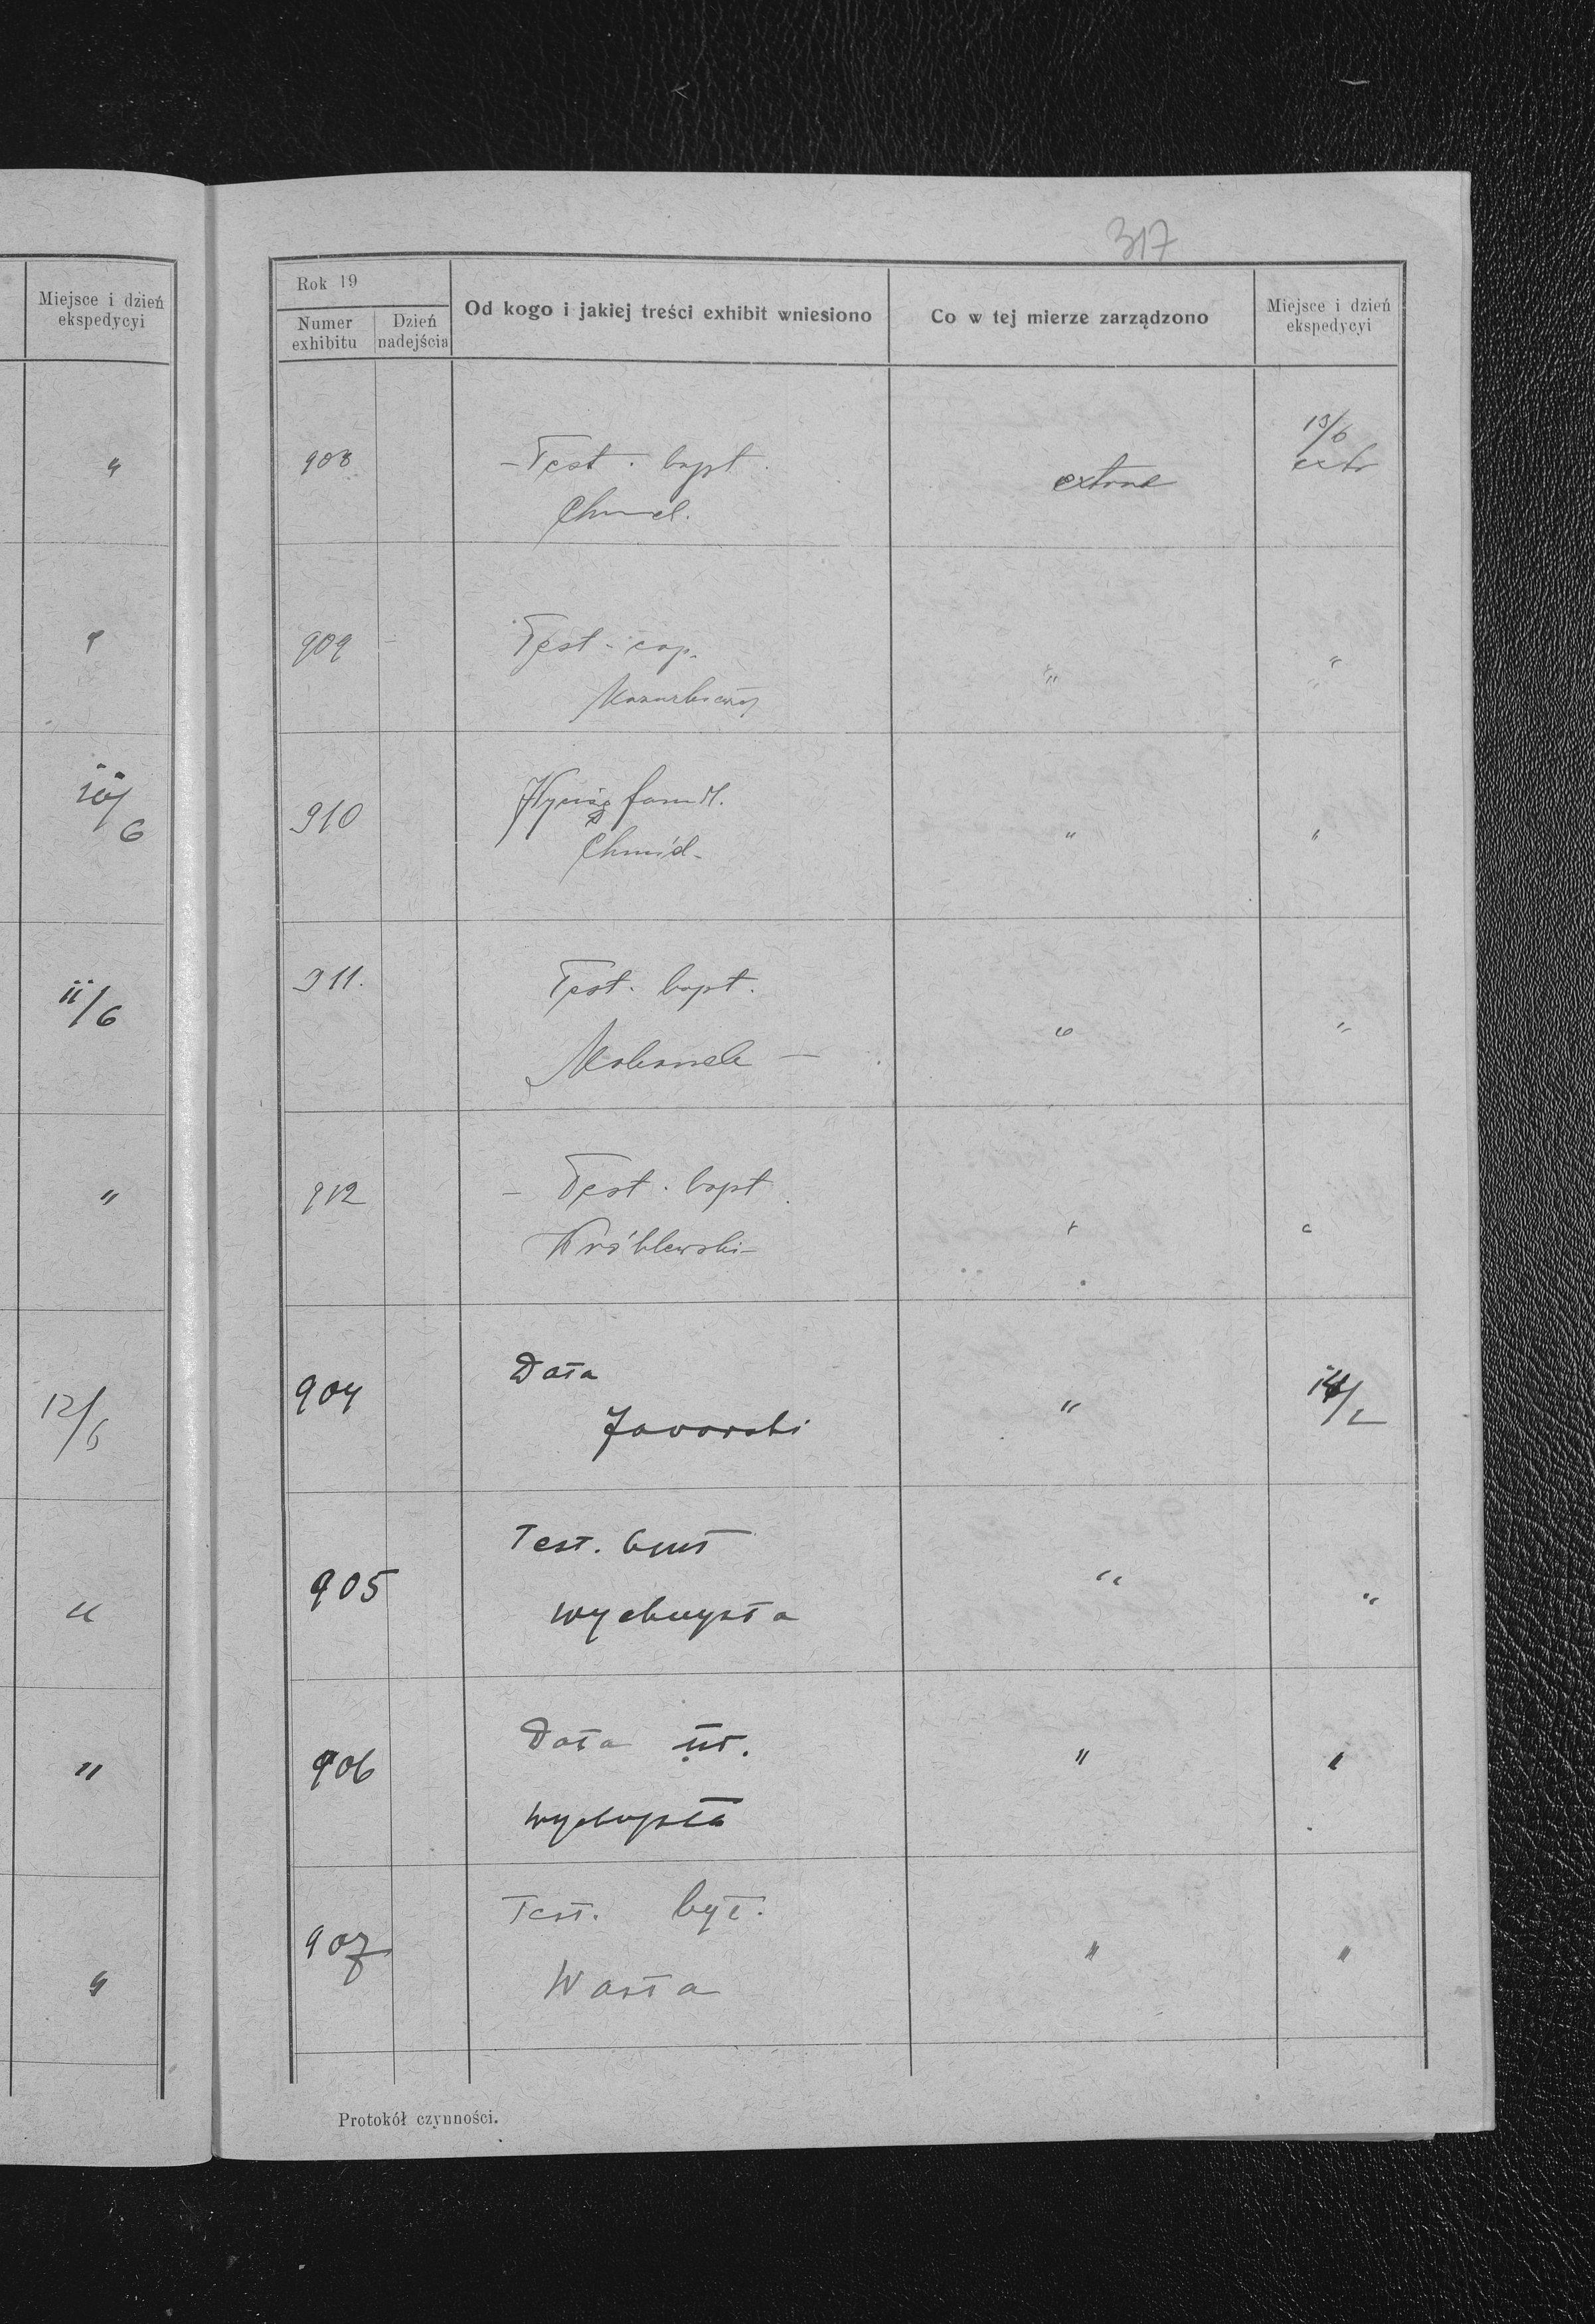 Miejsce i dzień
ekspedycyi
"
"
10/6
11/6
"
12/6
"
"
"
317
Rok 19
Numer
exhibitu
Dzień
nadejścia
Od kogo i jakiej treści exhibit wniesiono
Co w tej mierze zarządzono
Miejsce i dzień
ekspedycyi
908
Test. bapt.
Chmiel.
extrad
13/6
extr
909
Test. cop.
"
"
910
Wyciąg famil.
Chmiel
"
"
911.
Test. bapt.
"
"
912
Test. bapt.
Wróblewski
"
"
904
Data
Jaworski
"
14/6
905
Test.
"
"
906
Data
"
"
907
Test.
Wasta
"
"
Protokół czynności.